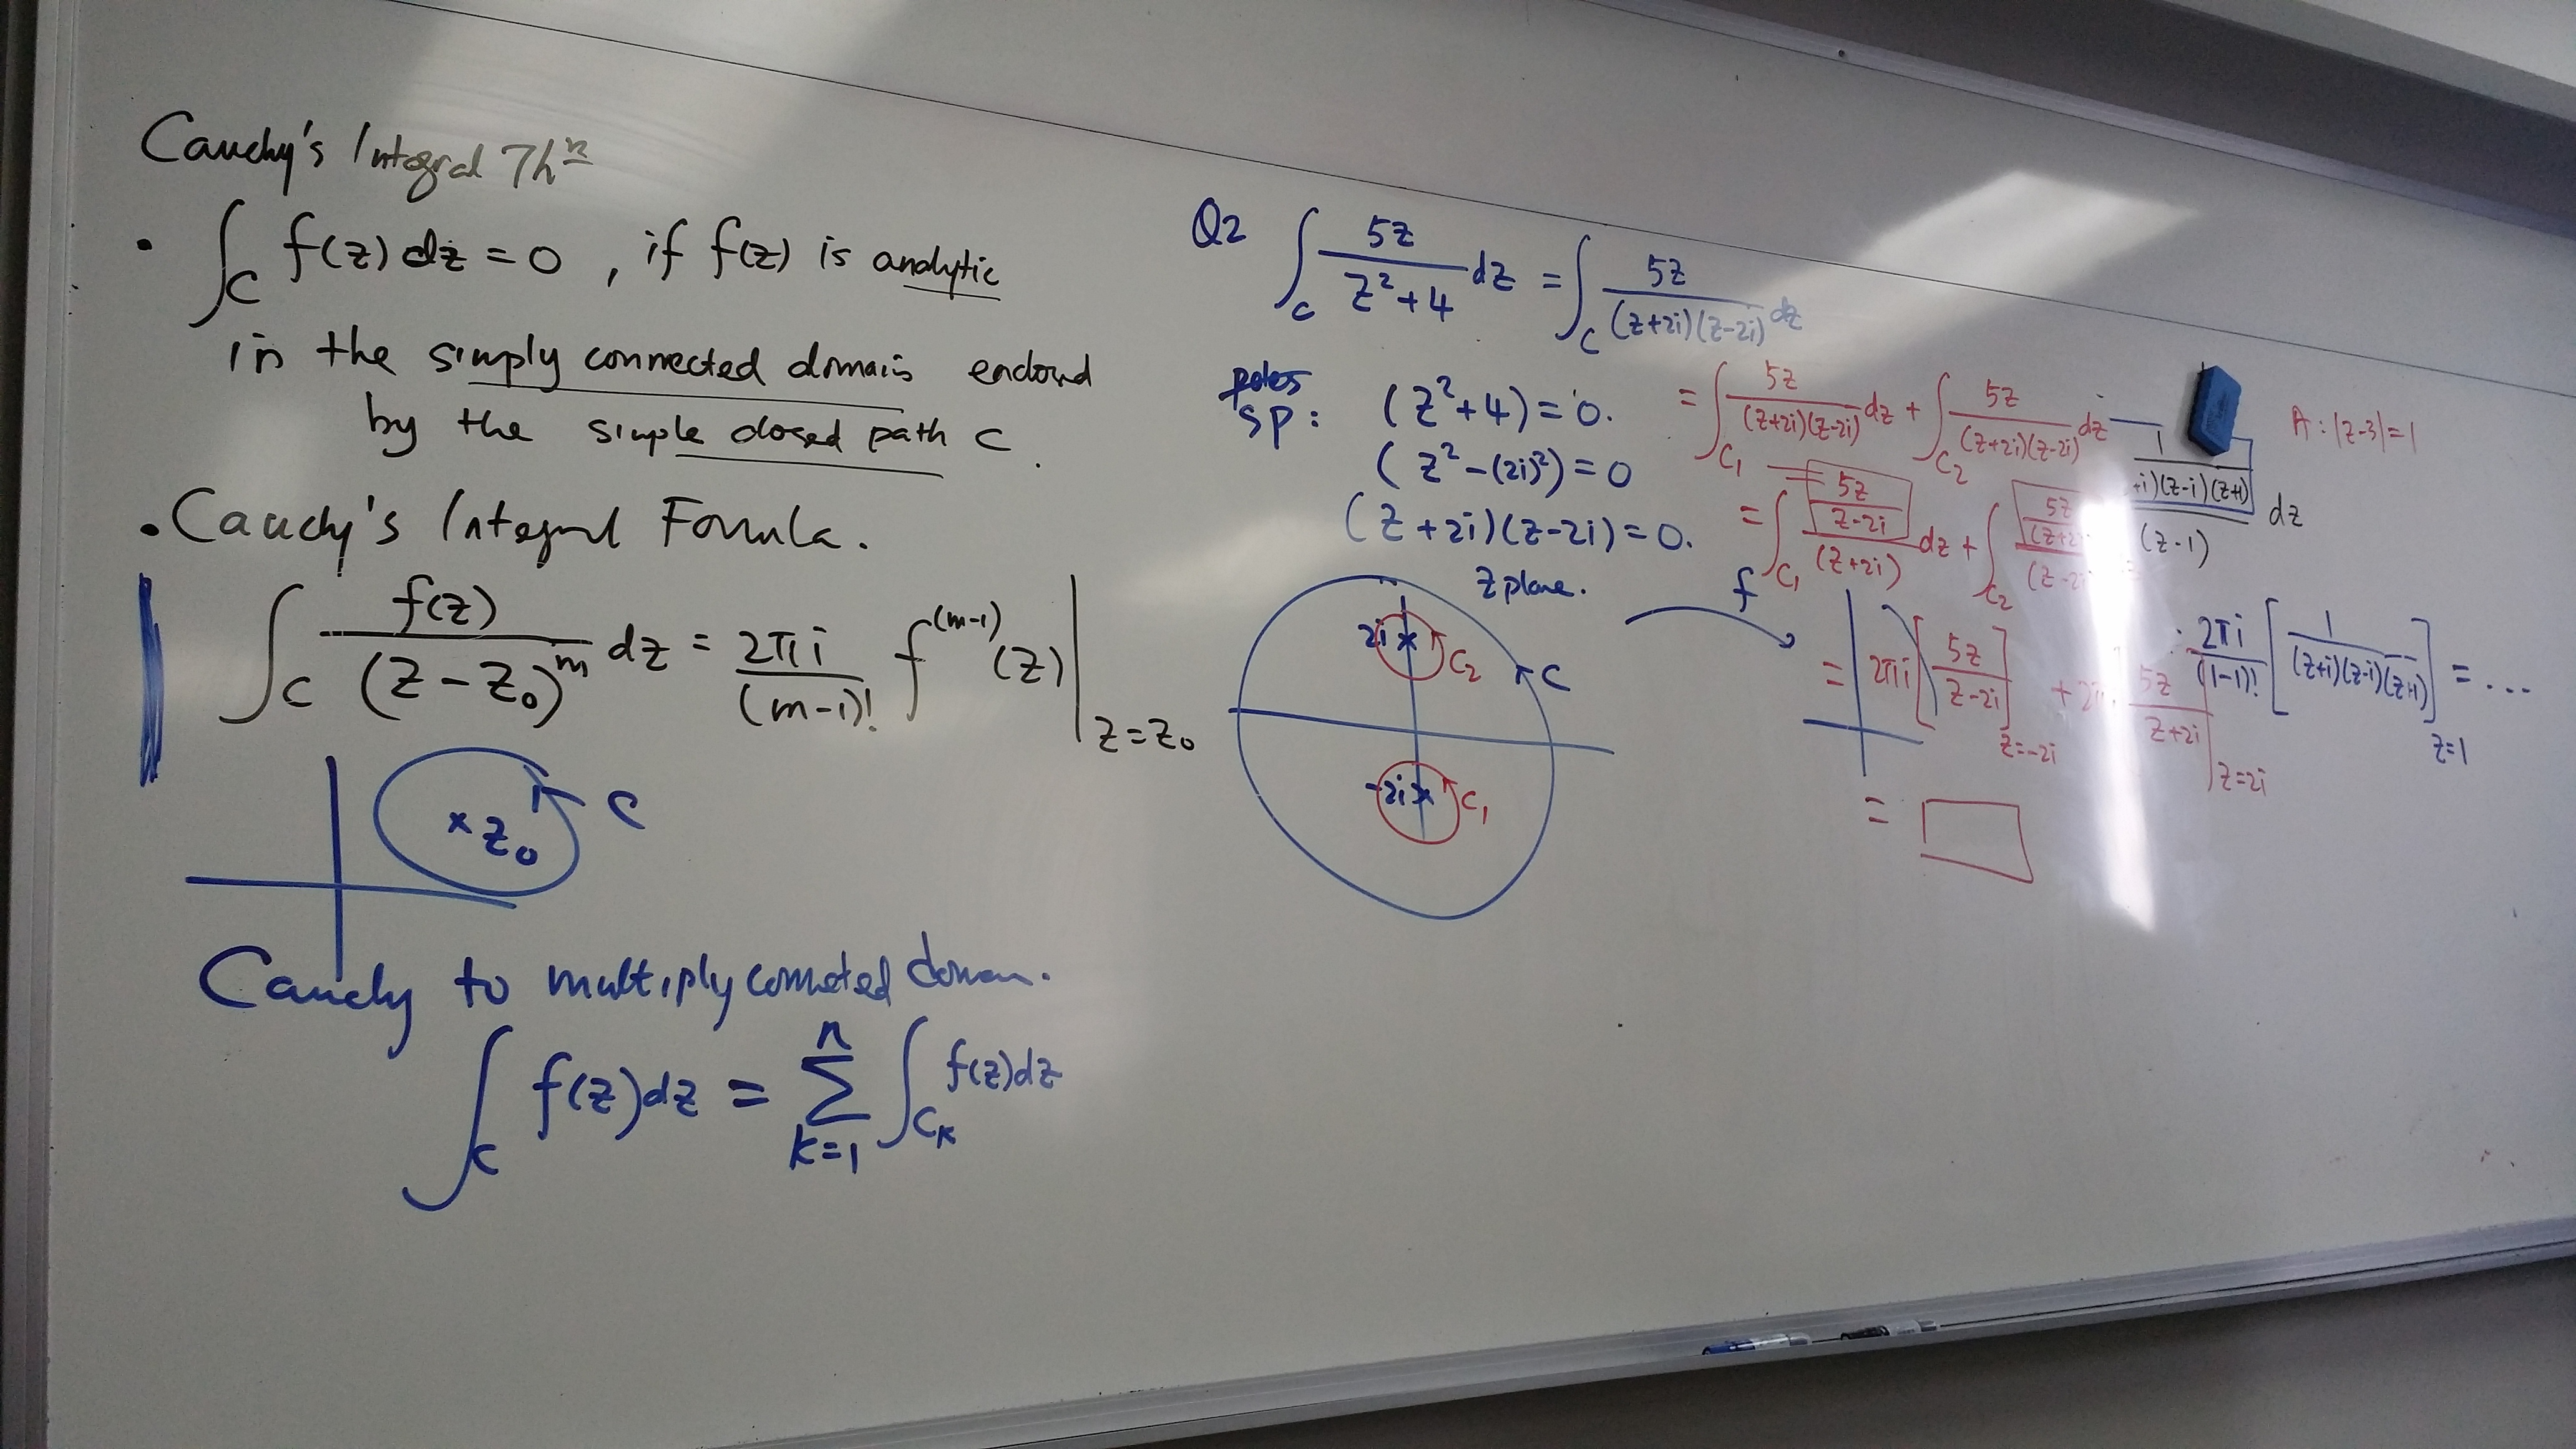 Cauchy's Integral Thⁿ
• ∫_C f(z) dz = 0 , if f(z) is analytic
in the simply connected domain enclosed
by the simple closed path C.
• Cauchy's Integral Formula.
∫_C f(z)/(z-z₀)^m dz = 2πi/(m-1)! f^(m-1)(z) |_{z=z₀}
× z₀ C
Cauchy to multiply connected domain.
∫_C f(z)dz = Σ_{k=1}^{n} ∫_{C_k} f(z)dz
Q2 ∫_C 5z/(z²+4) dz = ∫_C 5z/((z+2i)(z-2i)) dz
poles
sp: (z²+4)=0.
(z²-(2i)²)=0
(z+2i)(z-2i)=0.
z plane.
2i × C₂ C
-2i × C₁
f
= ∫_{C₁} 5z/((z+2i)(z-2i)) dz + ∫_{C₂} 5z/((z+2i)(z-2i)) dz
= ∫_{C₁} [5z/(z-2i)]/(z+2i) dz + ∫_{C₂} [5z/(z+2
(z-2
= 2πi [5z/(z-2i)]_{z=-2i} + 2πi 5z/(z+2i) |_{z=2i}
= □
A: |z-3|=1
1/(+i)(z-i)(z+1)
(z-1) dz
2πi/(1-1)! [1/((z+i)(z-i)(z+1))]_{z=1} = ...